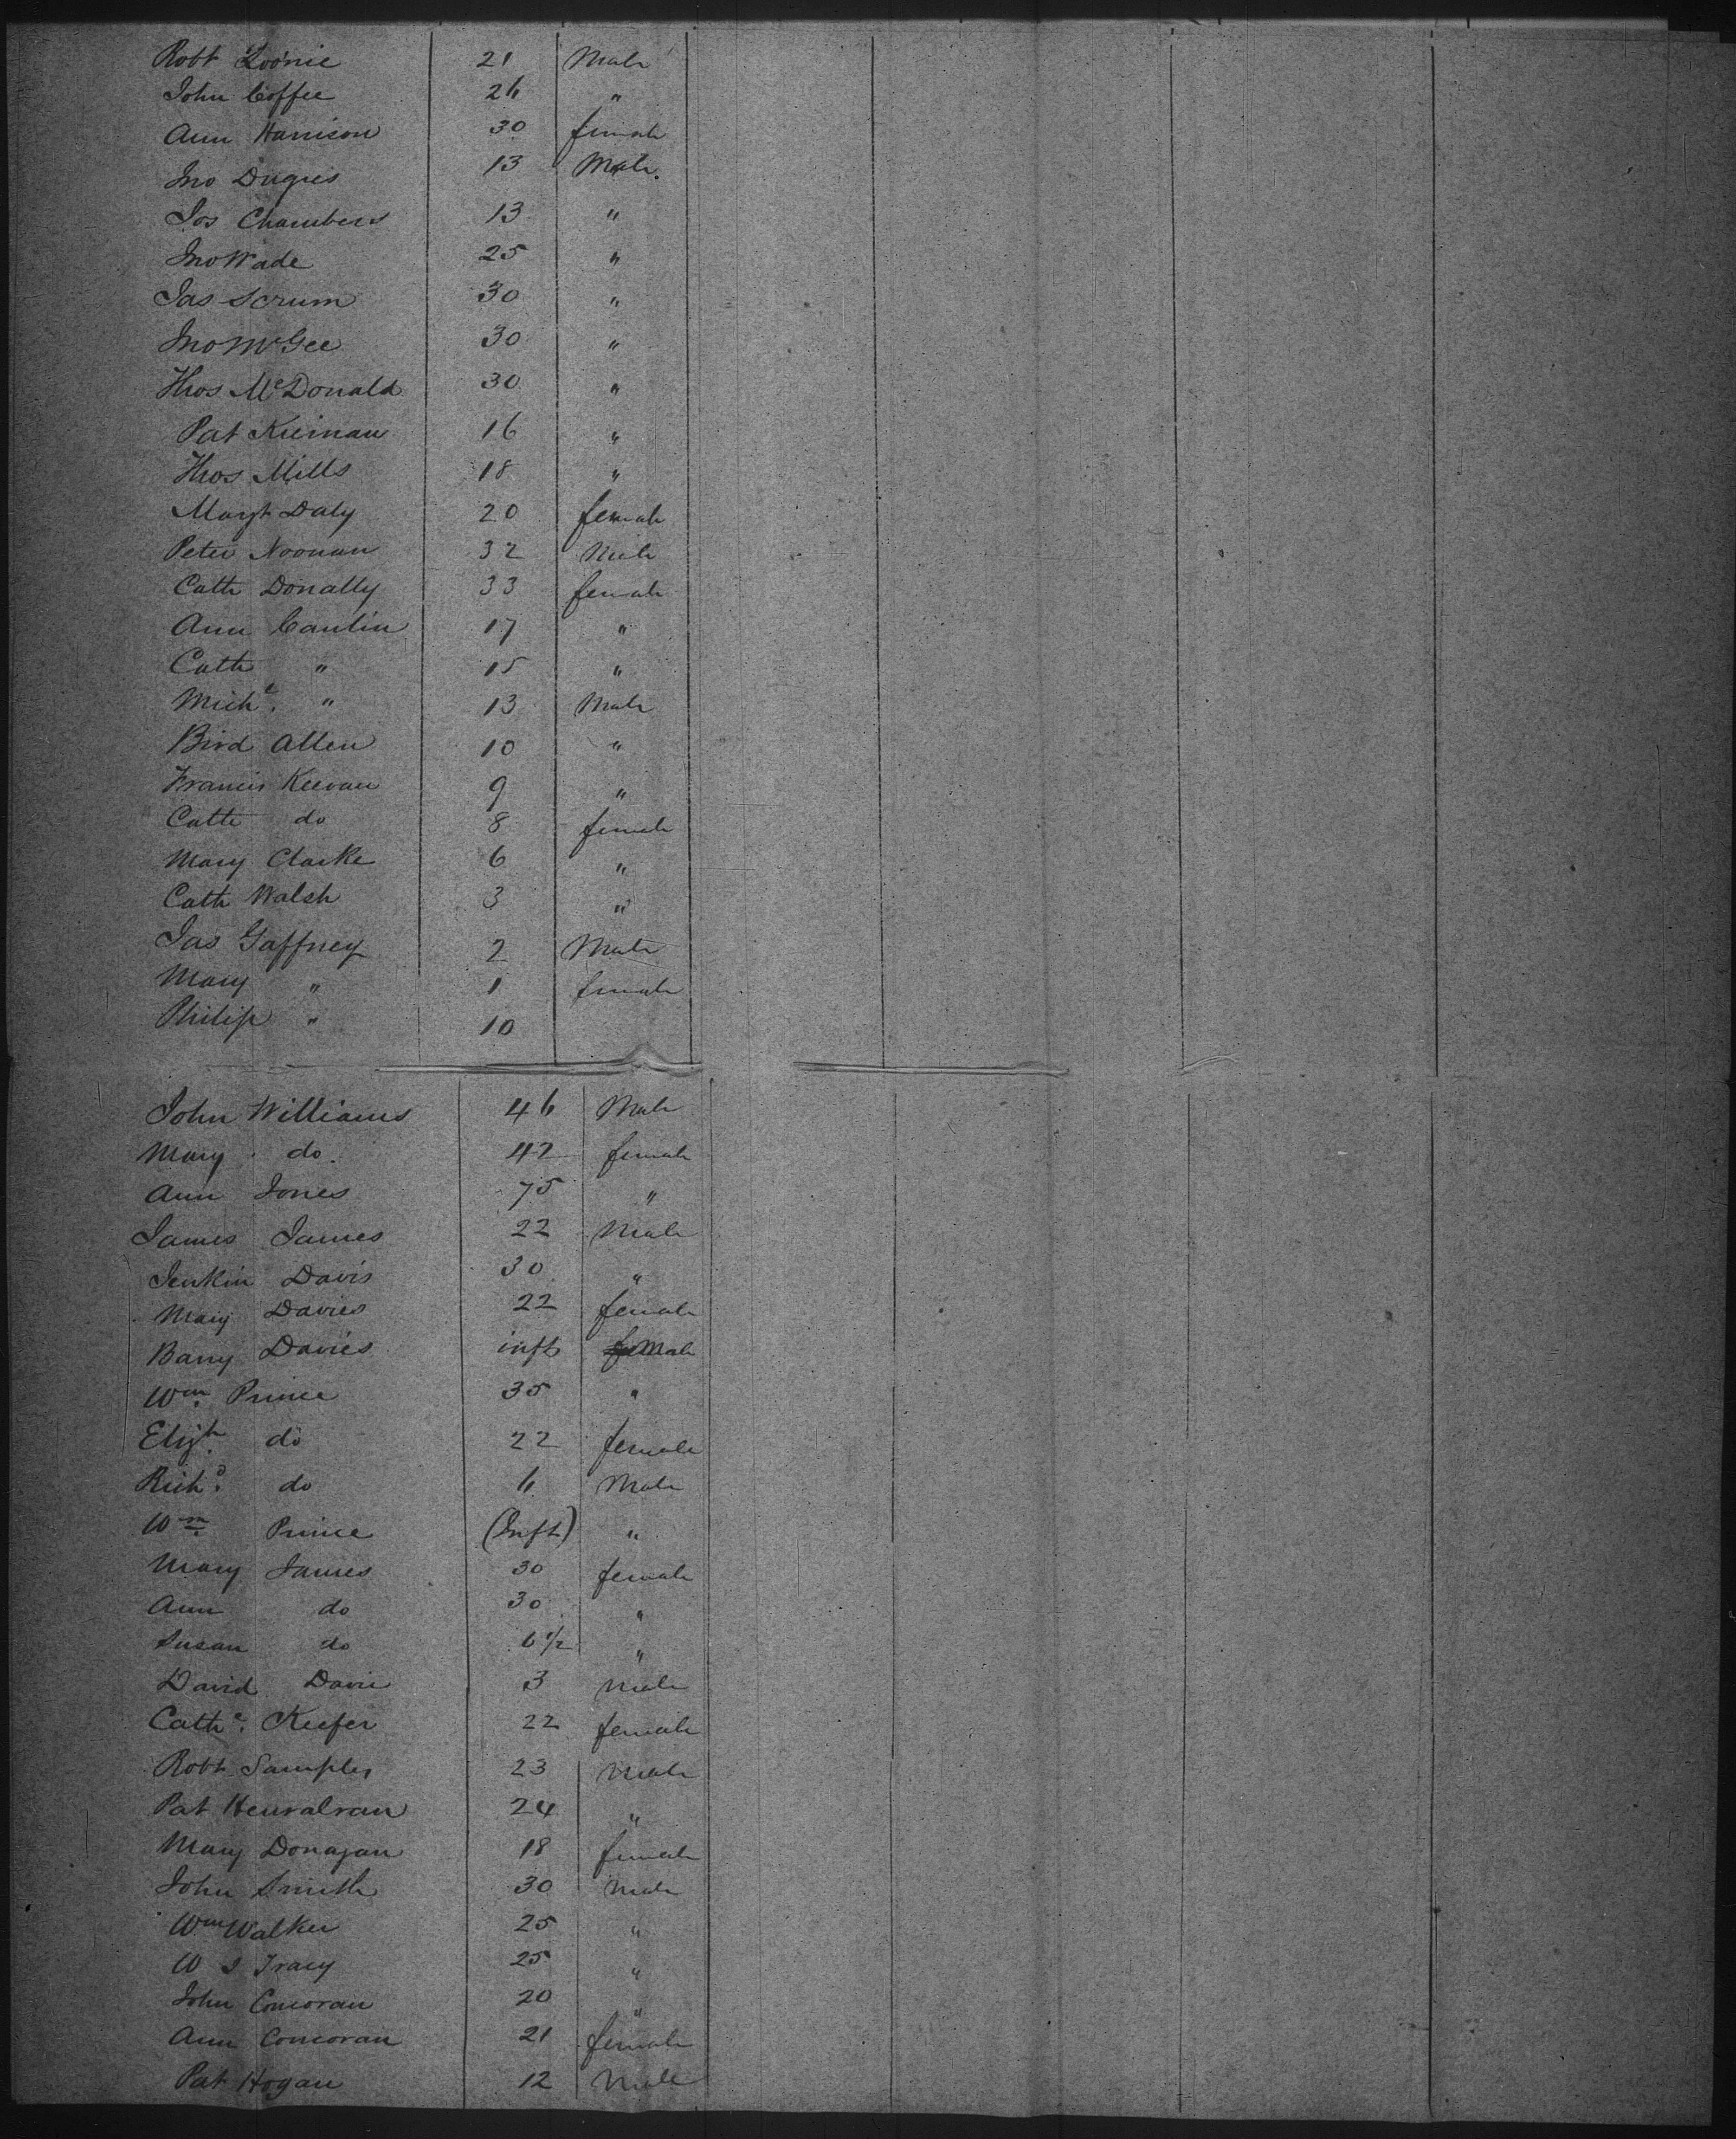 Robt Loonie 21 Male
John Coffee 26 "
Ann Harrison 30 female
Jno Dugies 13 Male.
Jos Chambers 13 "
Jno Wade 25 "
Jas Scrum 30 "
Jno McGee 30 "
Thos McDonald 30 "
Pat Kiernan 16 "
Thos Mills 18 "
Margt Daly 20 female
Peter Noonan 32 Male
Cath Donally 33 female
Ann Cantin 17 "
Cath " 15 "
Michl. " 13 Male
Bird Allen 10 "
Francis Keevan 9 "
Cath do 8 female
Mary Clarke 6 "
Cath Walsh 3 "
Jas Gaffney 2 Male
Mary " 1 female
Philip " 10
John Williams 46 Male
Mary do. 42 female
Ann Jones 75 "
James James 22 Male
Jenkin Davis 30 "
Mary Davies 22 female
Barry Davies inft Male
Wm. Prince 35 "
Elizh. do 22 female
Richd. do 6 Male
Wm. Prince (Inft) "
Mary James 30 female
Ann do 30 "
Susan do 6 1/2 "
David Davie 3 Male
Cathe. Keefer 22 female
Robt Samples 23 Male
Pat 24 "
Mary Donagan 18 female
John Smith 30 Male
Wm Walker 25 "
W J Tracy 25 "
John Concoran 20 "
Ann Concoran 21 female
Pat Hogan 12 Male